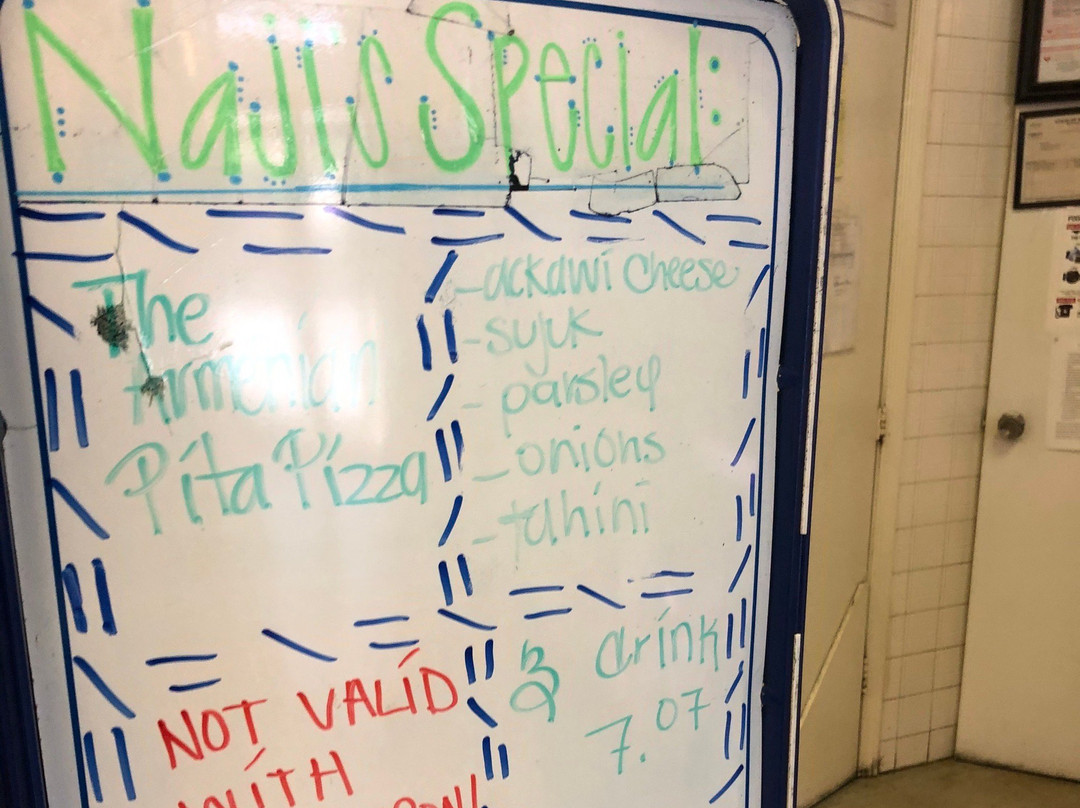 Naji's Special:
The
Armenian
Pita Pizza
- ackawi cheese
- sujuk
- parsley
- onions
- tahini
& drink
7.07
NOT VALID
WITH